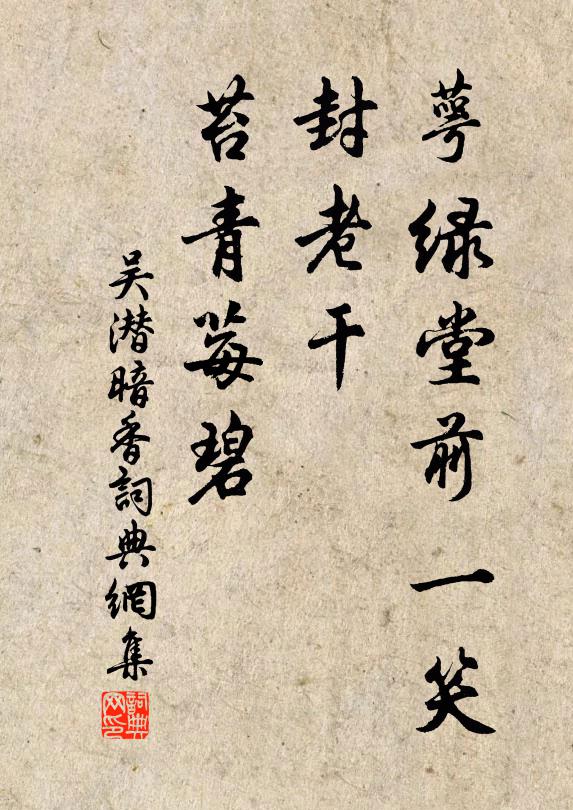 萼绿堂前一笑
封老干
苔青莓碧
吴潜暗香詞典網集
詞典网印